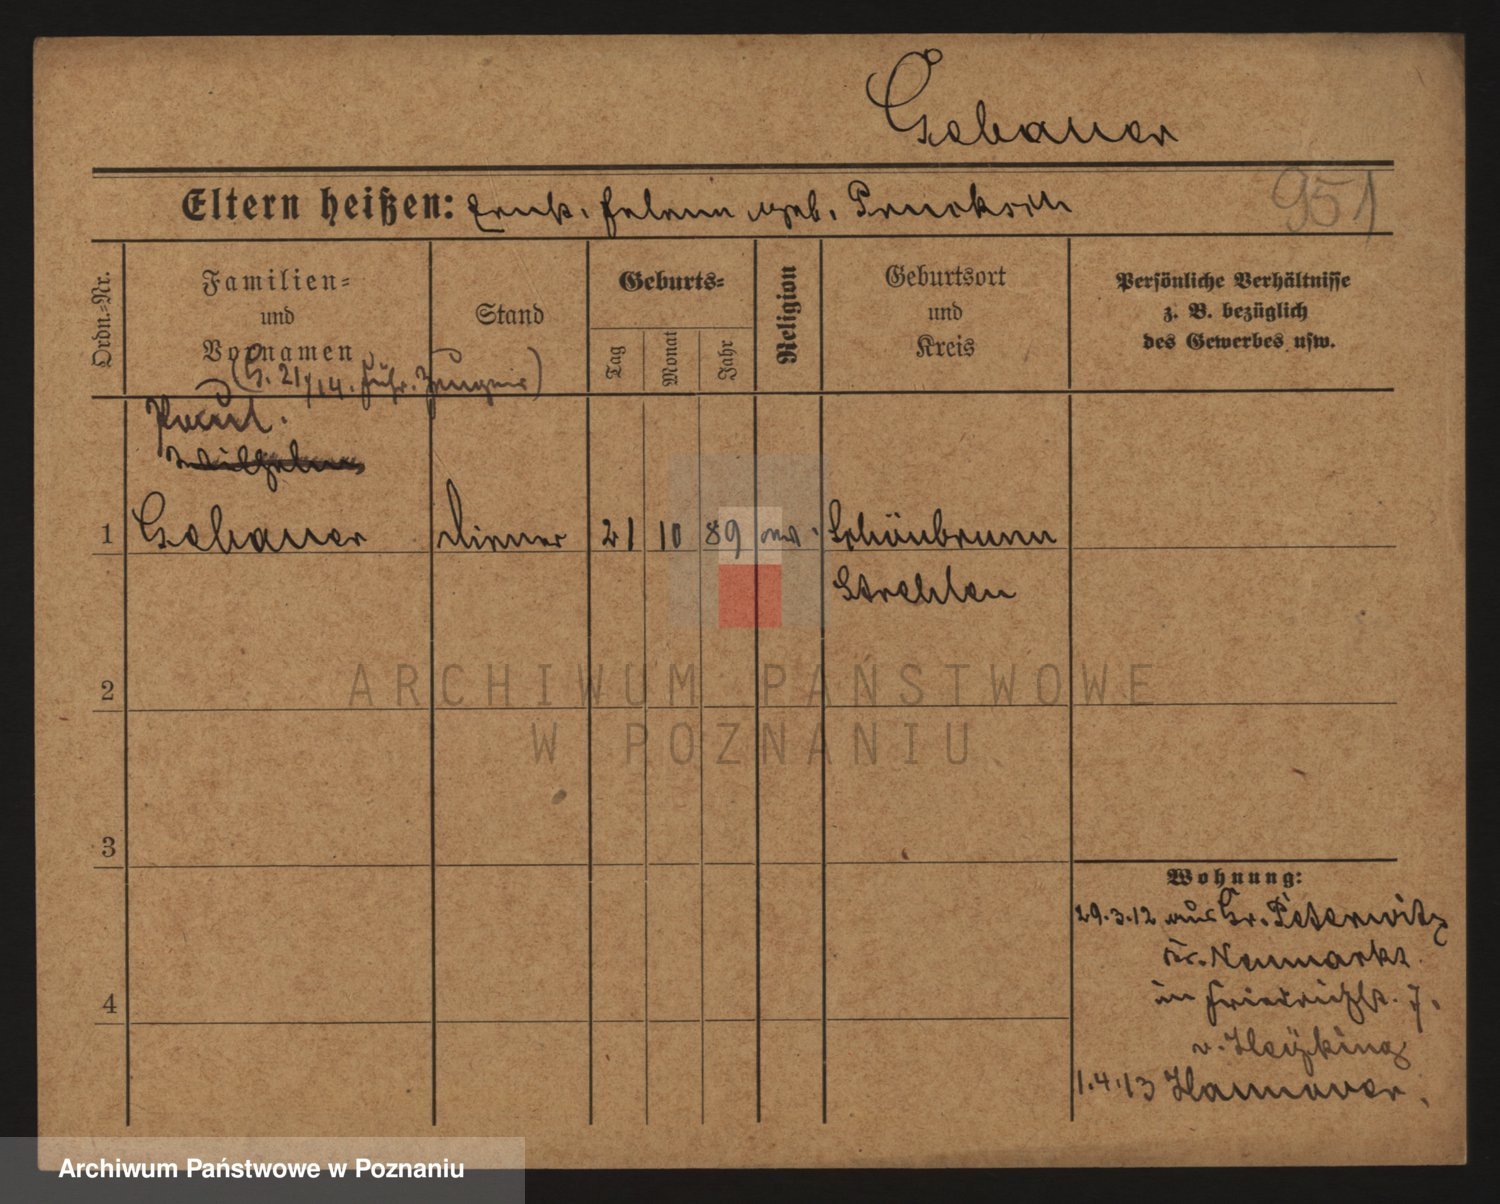 Gebauer
Eltern heißen: geb.
951
Ordn.=Nr.
Familien=
und
Vornamen
Stand
Geburts=
Tag
Monat
Jahr
Religion
Geburtsort
und
Kreis
Persönliche Verhältnisse
z. B. bezüglich
des Gewerbes usw.
(G. 21/14. Führ. Zeugnis)
Paul.
Wilhelm
1 Gebauer Diener 21 10 89 Schönbrunn
Strehlen
2
3
4
Wohnung:
29.3.12 aus Gr. Peterwitz
Kr. Neumarkt
in Friedrichstr. 7.
v. Heyking
1.4.13 Hannover.
ARCHIWUM PAŃSTWOWE
W POZNANIU
Archiwum Państwowe w Poznaniu